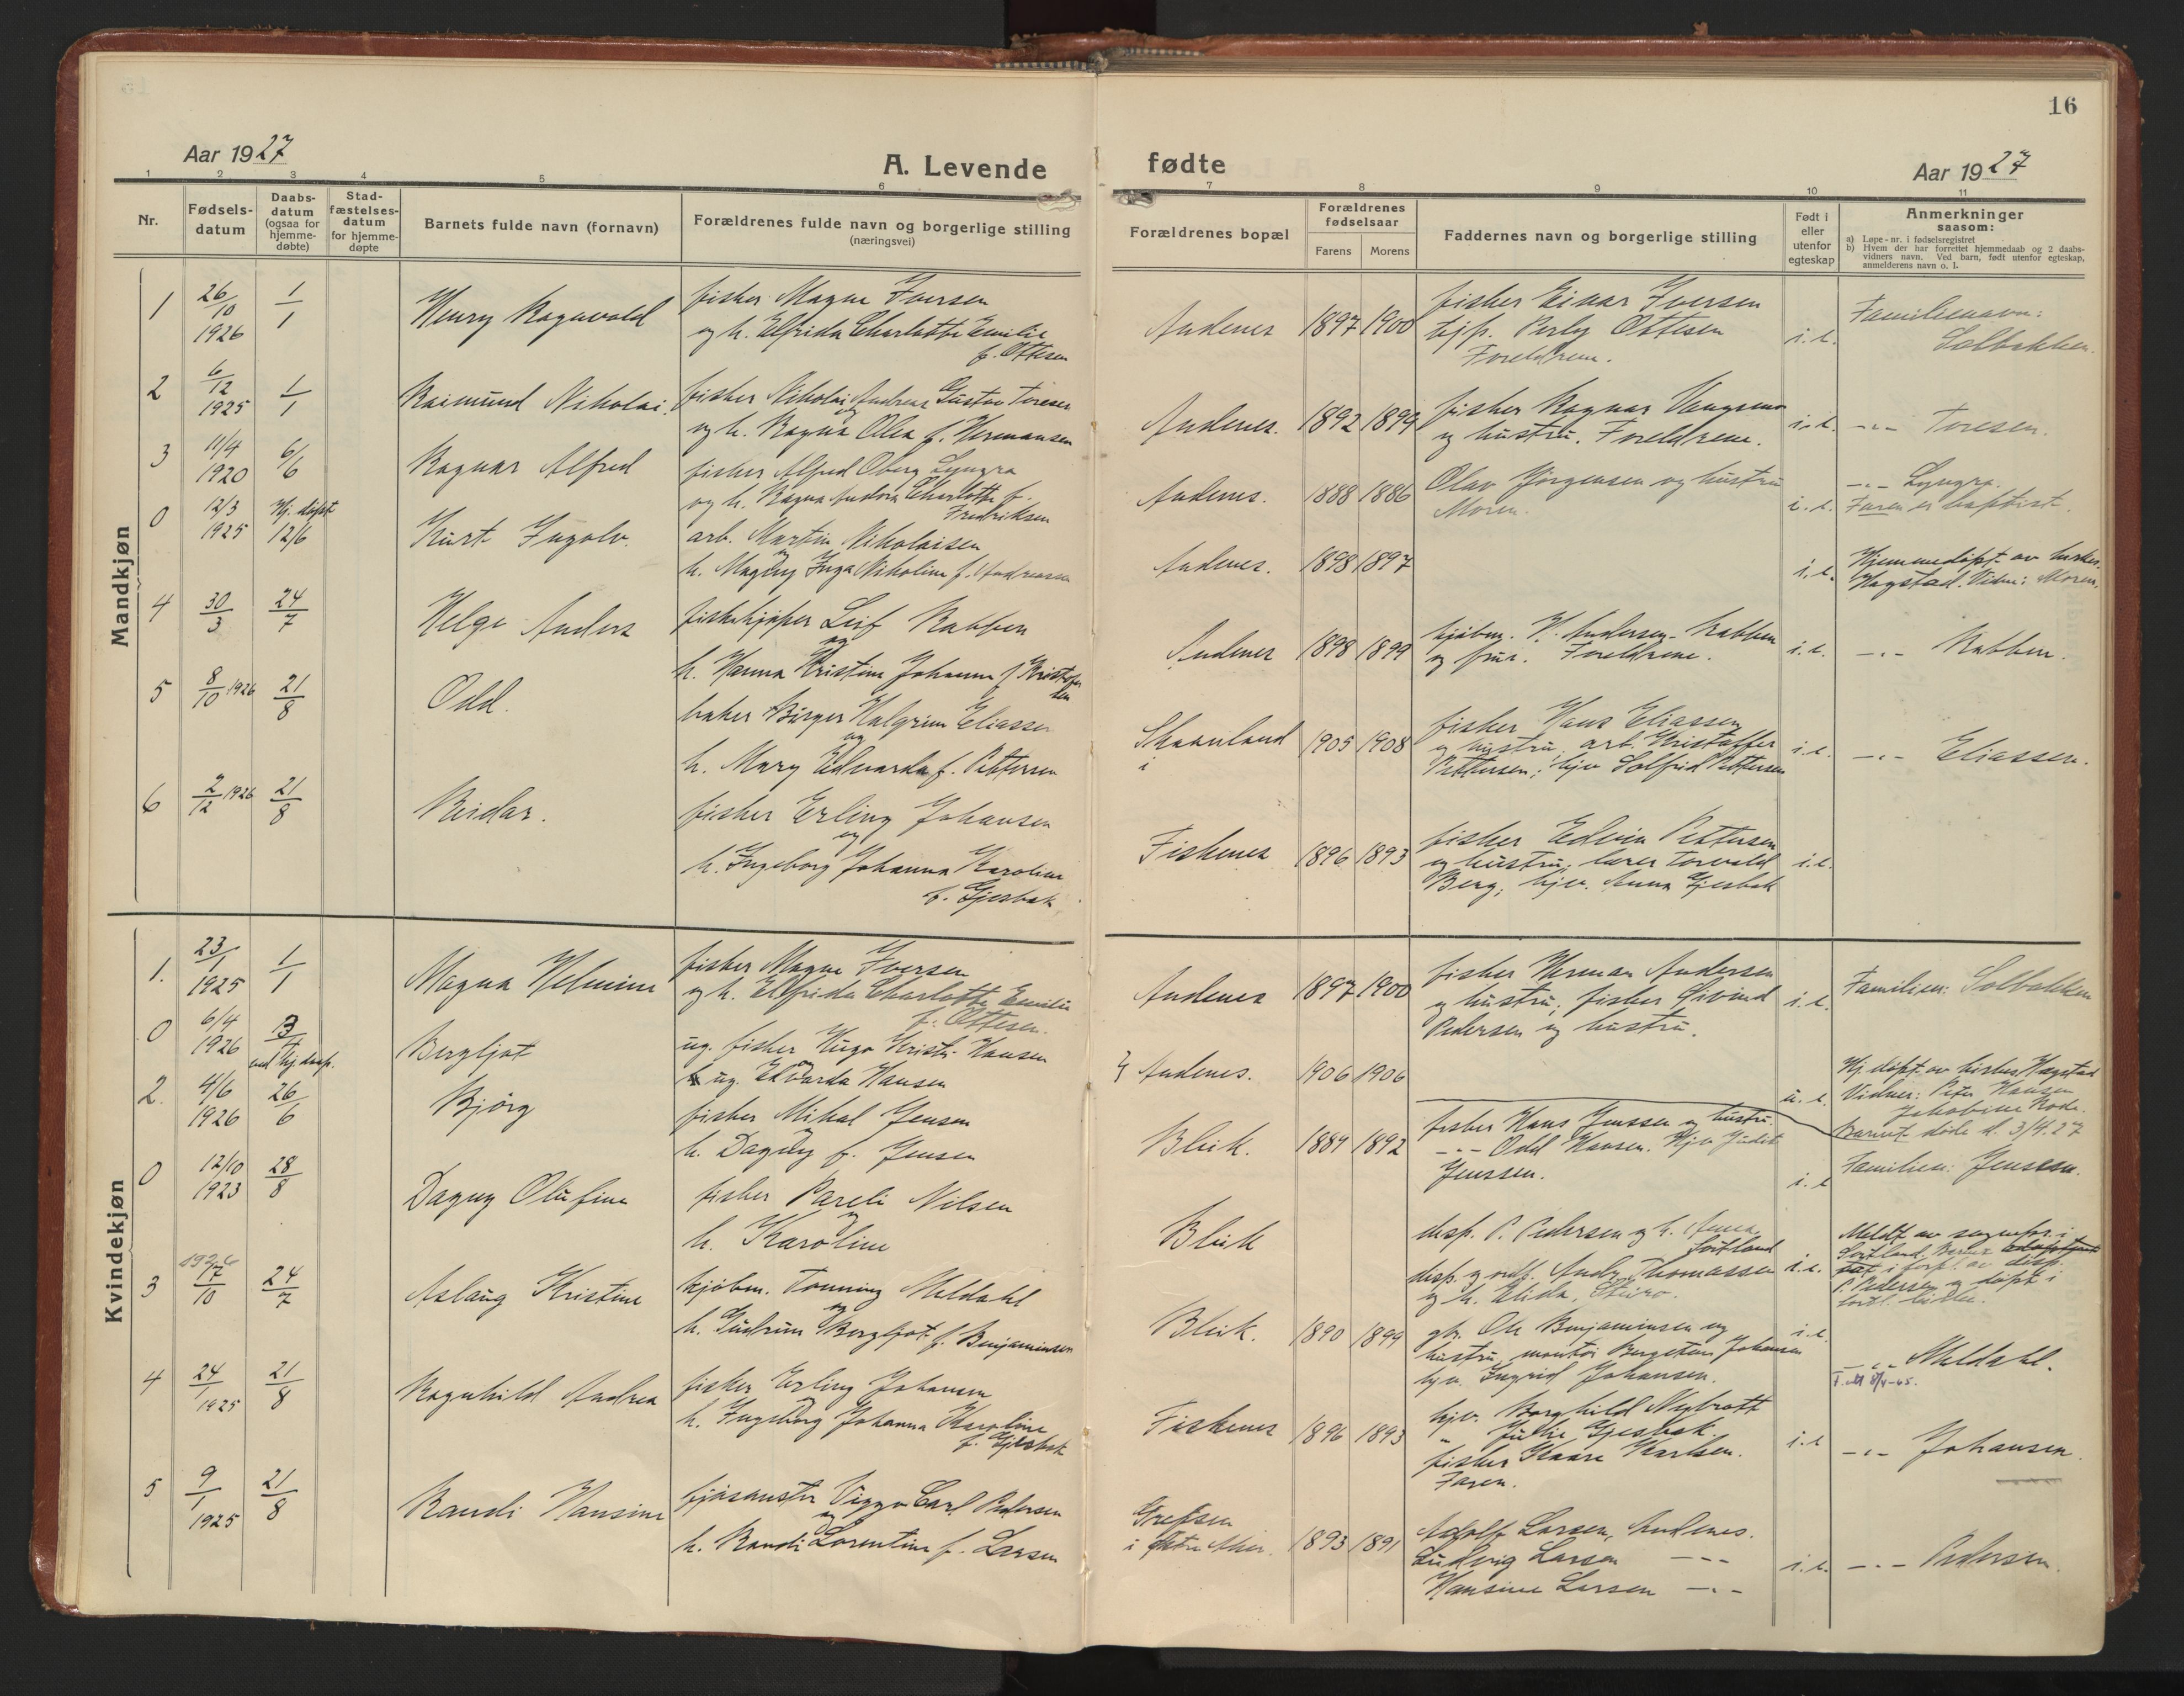 16
Aar 1927
A. Levende
fødte
Aar 1927
1 2 3 4 5 6 7 8 9 10 11
Nr.
Fødsels-
datum
Daabs-
datum
(ogsaa for
hjemme-
døbte)
Stad-
fæstelses-
datum
for hjemme-
døpte
Barnets fulde navn (fornavn)
Forældrenes fulde navn og borgerlige stilling
(næringsvei)
Forældrenes bopæl
Forældrenes
fødselsaar
Farens Morens
Faddernes navn og borgerlige stilling
Født i
eller
utenfor
egteskap
Anmerkninger
saasom:
a) Løpe-nr. i fødselsregistret
b) Hvem der har forrettet hjemmedaab og 2 daabs-
vidners navn. Ved barn, født utenfor egteskap,
anmelderens navn o. l.
Mandkjøn
1
26/10
1926
1/1
Henry Ragnvald
fisker Magne Iversen
og h. Elfrida Charlotte Emilie
f. Ottesen
Andenes
1897 1900
fisker Einar Iversen
Perly Ottesen
Foreldrene.
i. e.
Familienavn:
Solbakken.
2
6/12
1925
1/1
Raimund Nikolai.
fisker Nikolai Andreas Gustav Toresen
og h. Ragna Olea f. Hermansen
Andenes.
1892 1899
fisker Ragnar
og hustru. Foreldrene.
i. e.
-"- Toresen.
3
11/4
1920
6/6
Ragnar Alfred
fisker Alfred Oberg Lyngra
og h. Ragna Andrea Charlotte f.
Fredriksen
Andenes.
1888 1886
Olav Jørgensen og hustru
Moren.
i. e.
-"- Lyngra.
Faren er baptist.
0
12/3
1925
Hj. døpt
12/6
Kurt Ingolv.
arb. Martin Nikolaisen
og
h. Magny Inga Nikoline f. Andreassen
Andenes.
1898 1897
i. e.
Hjemmedøpt av
Hagstad. Vidne: Moren.
4
30/3
24/7
Helge Anders
fiskekjøper Leif Rabben
og
h. Hanna Kristine Johanne f. Kristoffer
sen
Andenes
1898 1899
kjøbm. H. Andersen-Rabben
og frue. Foreldrene.
i. e.
-"- Rabben.
5
8/10 1926
21/8
Odd.
baker Birger Halgrim Eliassen
og
h. Mary Edvarda f. Pettersen
Skaanland
i
1905 1908
fisker Hans Eliassen
og hustru, arb. Kristoffer
Pettersen; hjv. Solfrid Pettersen
i. e.
-"- Eliassen.
6
2/12 1926
21/8
Reidar.
fisker Erling Johansen
og
h. Ingeborg Johanna Karoline
f. Gjesbak
Fiskenes
1896 1893
fisker Edvin Pettersen
og hustru, lærer Torvald
Berg, hjv. Anna Gjesbak
i. e.
Kvindekjøn
1.
23/1
1925
1/1
Magna Helmine
fisker Magne Iversen
og h. Elfrida Charlotte Emilie
f. Ottesen.
Andenes
1897 1900
fisker Herman Andersen
og hustru, fisker Eivind
Pedersen og hustru.
i. e.
Familien: Solbakken
0
6/4
1926
ved hj. daap.
Bergljot
ug. fisker Hugo Kristi. Hansen
og
ug. Edvarda Hansen
Andenes.
1906 1906
u. e.
Hj. døpt av Hagstad
Vidner: Peter Hansen
Jakobine Rode.
Barnet døde d. 3/4.27
2.
4/6
1926
26/6
Bjørg
fisker Mikal Jensen
og
h. Dagny f. Jensen
Bleik.
1889 1892
fisker Hans Jenssen og hustru.
-"- Odd Hansen. Hjv. Judit
Jenssen.
i. e
Familien: Jenssen.
0
12/10
1923
28/8
Dagny Olufine
fisker Pareli Nilsen
og
h. Karoline
Bleik
disp. P. Pedersen og h. Anna
Sortland
disp. og ordf. Andr. Thomassen
og h. Elida,
i. e.
Meldt av sognepr. i
Sortland. Barnet
i forpl. av disp.
P. Pedersen og døpt i
3
1926
17/10
24/7
Aslaug Kristine
kjøbm. Tønning Meldahl
og
h. Gudrun Bergljot f. Benjaminsen
Bleik.
1890 1899
gbr. Ole Benjaminsen og
hustru, montør Bergeton Johansen
hjv. Ingrid Johansen.
i. e.
-"- Meldahl.
4
24/1
1925
21/8
Ragnhild Andrea
fisker Erling Johansen
h. Ingeborg Johanna Karoline
f. Gjesbak
Fiskenes
1896 1893
hjv. Borghild Nybrott
" Julie Gjesbak.
fisker Kaare Karlsen.
Faren.
i. e
-"- Johansen.
5
9/1
1925
21/8
Randi Hansine
Viggo Carl Pedersen
og
h. Randi Lorentine f. Larsen
Grefsen
i Østre Aker.
1893 1891
Adolf Larsen, Andenes.
Ludvig Larsen -"-
Hansine Larsen -"-
i. e.
-"- Pedersen.